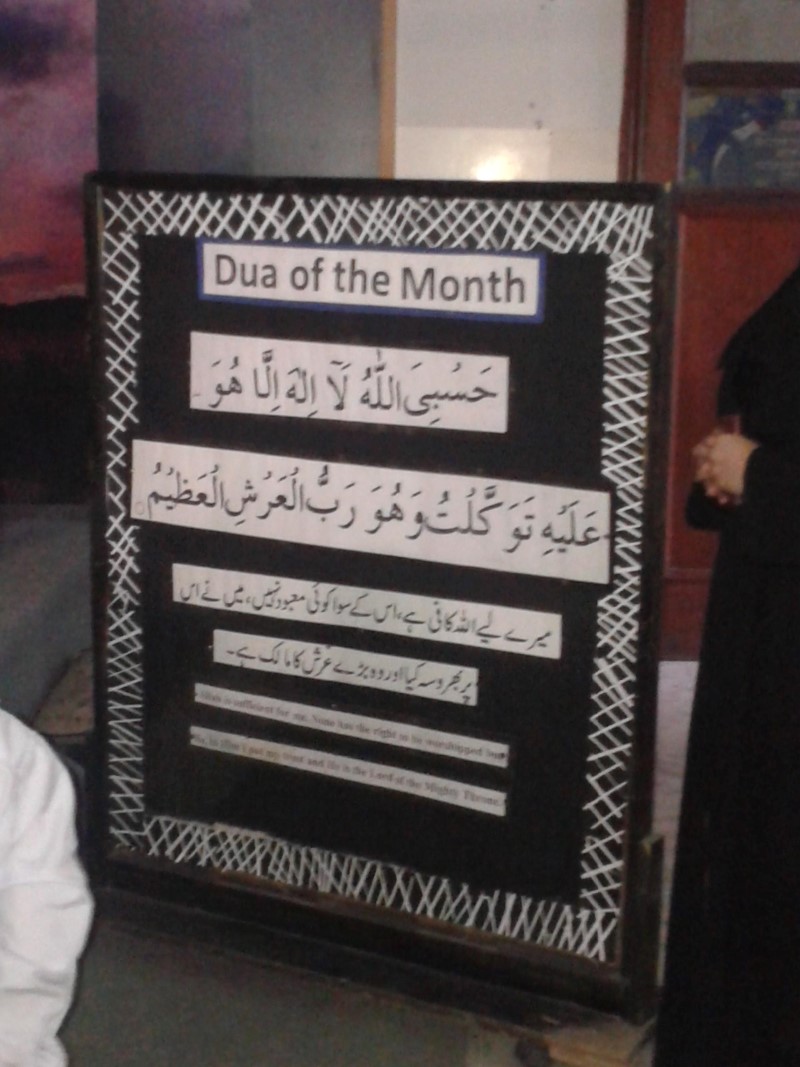 Dua of the Month
حَسْبِيَ اللّٰهُ لَآ اِلٰهَ اِلَّا هُوَ
عَلَيْهِ تَوَكَّلْتُ وَهُوَ رَبُّ الْعَرْشِ الْعَظِيْمُ
میرے لیے اللہ کافی ہے، اس کے سوا کوئی معبود نہیں، میں نے اس
پر بھروسہ کیا اور وہ بڑے عرش کا مالک ہے۔
Allah is sufficient for me. None has the right to be worshipped but
He, in Him I put my trust and He is the Lord of the Mighty Throne.